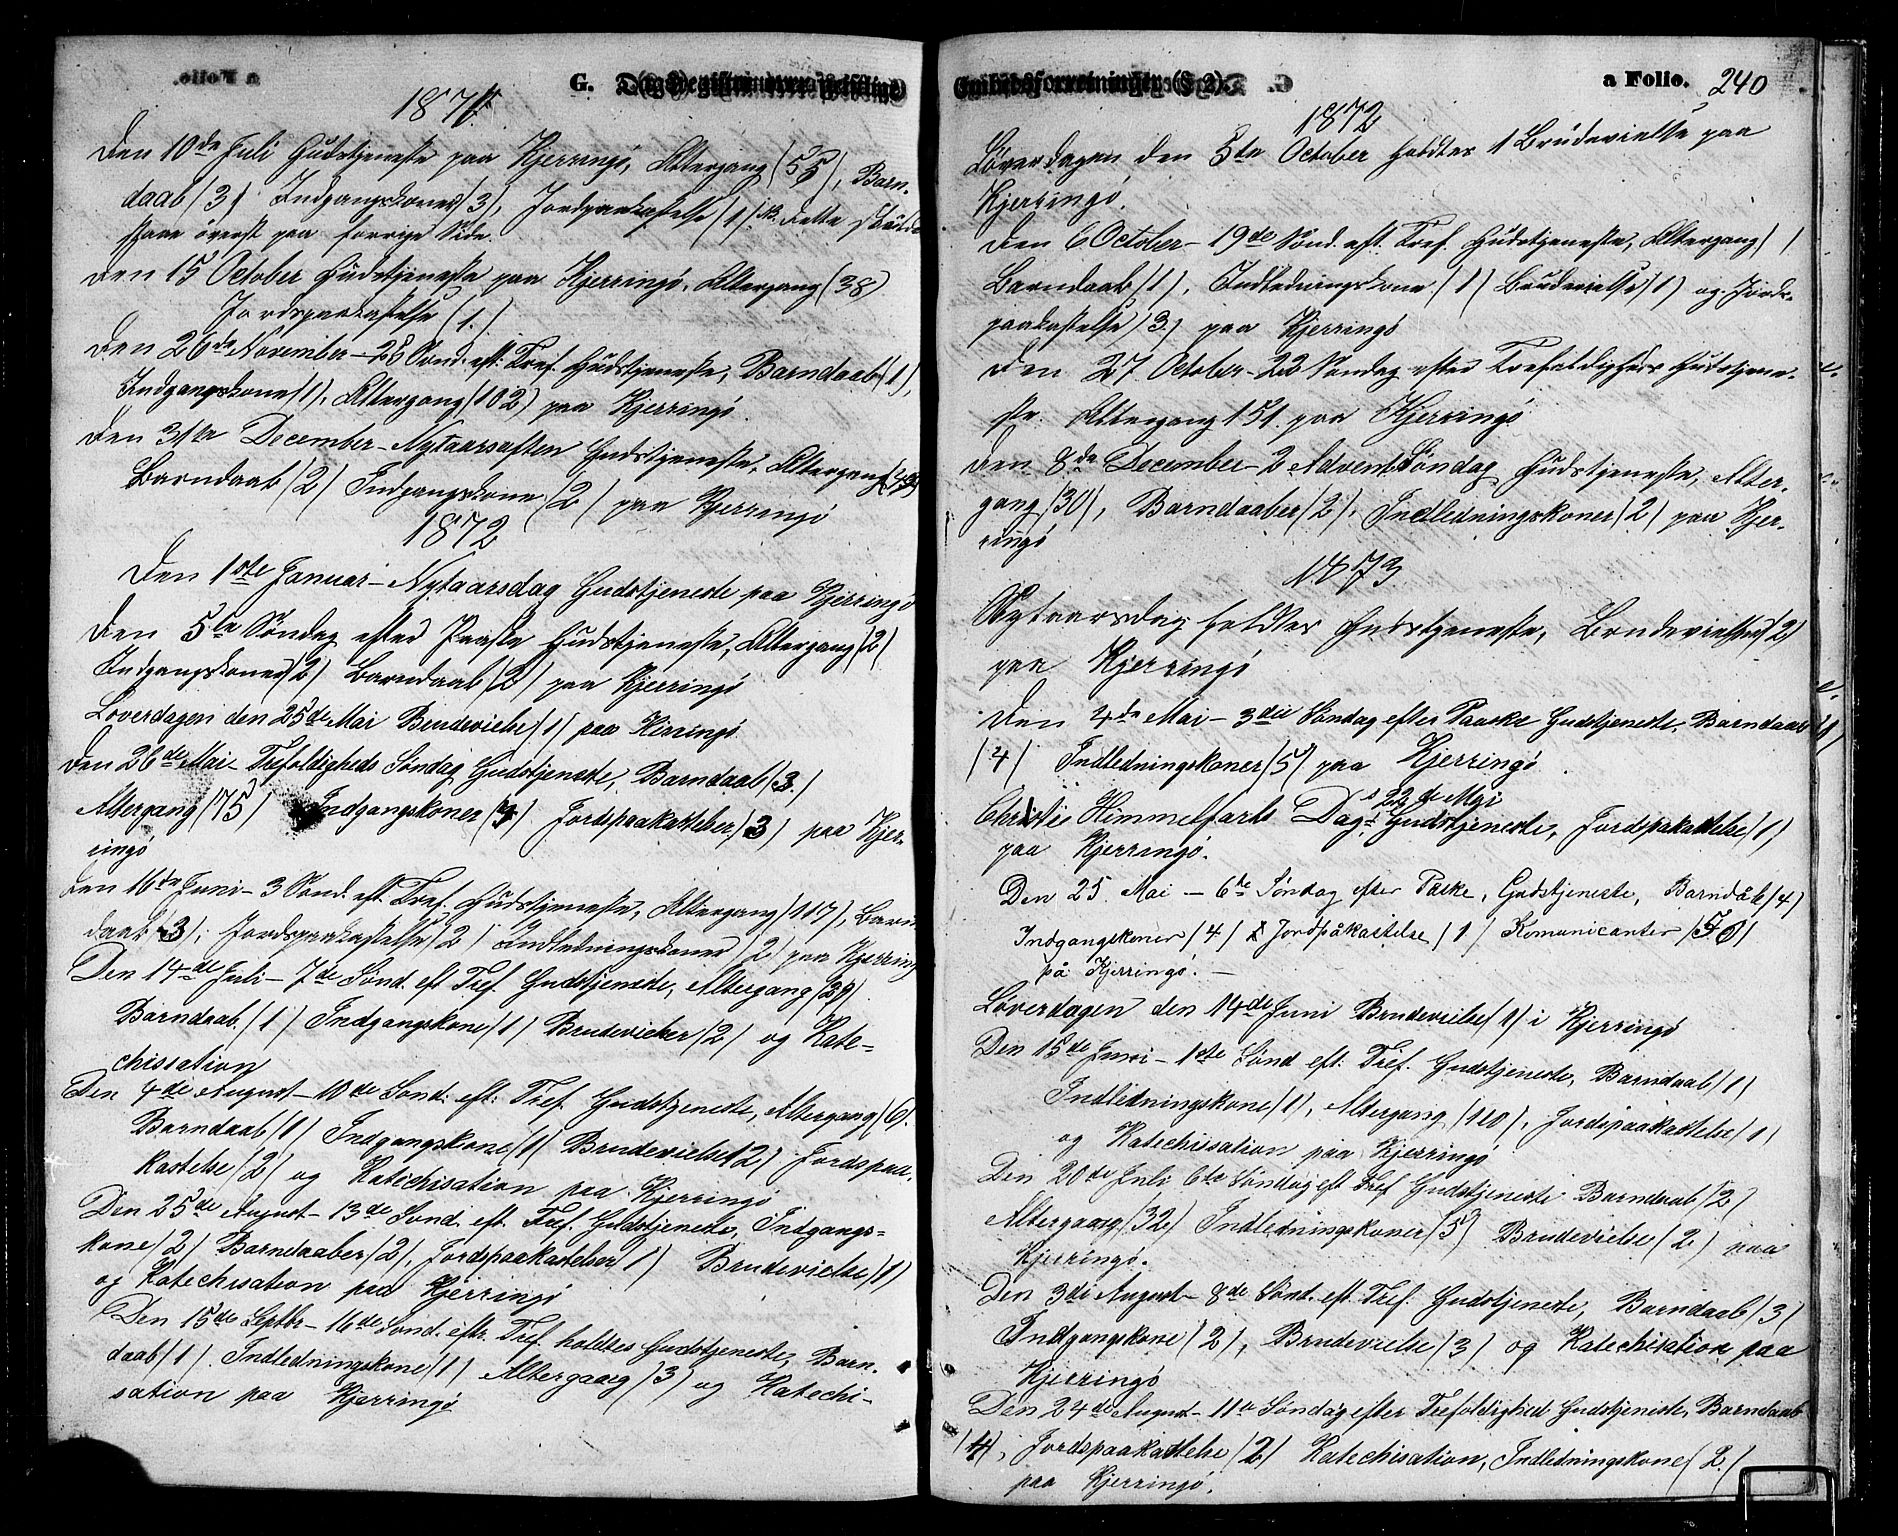 G. Dagsregister over geistlige
1871.
Den 10de Juli Gudstjeneste paa Kjerringö, Altergang (55), Barn-
daab (3) Indgangskoner (3), Jordpaakastelse (1). NB. dette skulde
staae överst paa forrige Side.
Den 15 October Gudstjeneste paa Kjerringö, Altergang (38)
Jordspaakastelse (1.)
Den 26de November - 26 Sönd. eft. Tref. Gudstjeneste, Barndaab (1),
Indgangskone (1), Altergang (102) paa Kjerringö.
Den 31te December - Nytaarsaften Gudstjeneste, Altergang
Barndaab (2) Indgangskone (2) paa Kjerringö
1872
Den 1ste Januar - Nytaarsdag Gudstjeneste paa Kjerringö
Den 5te Söndag efter Paaske Gudstjeneste, Altergang (2)
Indgangskoner (2) Barndaab (2) paa Kjerringö
Löverdagen den 25de Mai Brudevielse (1) paa Kjerringö
Den 26de Mai - Trefoldigheds Söndag Gudstjeneste, Barndaab (3.)
Altergang (75) Indgangskoner (3) Jordspaakastelser (3) paa Kjer-
ringö
Den 16de Juni - 3 Sönd. eft. Tref. Gudstjeneste, Altergang (117), Barn-
daab (3), Jordspaakastelse (2) Indledningskoner (2) paa Kjerringö
Den 14de Juli - 7de Sönd. eft Tref. Gudstjeneste, Altergang (29)
Barndaab (1) Indgangskone (1) Brudevielser (2) og Kate=
chisation
Den 4de August - 10de Sönd. eft: Tref. Gudstjeneste, Altergang (6).
Barndaab (1) Indgangskone (1) Brudevielse (2) Jordspaa-
kastelse (2) og Katechisation paa Kjerringö
Den 25de August - 13de Sönd. eft. Tref. Gudstjeneste, Indgangs=
kone (2) Barndaaber (2), Jordspaakastelser (1) Brudevielse (1)
og Katechisation paa Kjerringö
Den 15de Septbr - 16de Sönd. eftr. Tref. holdtes Gudstjeneste, Barn-
daab (1). Indledningskone (1) Altergang (3) og Katechi-
sation paa Kjerringö
Embedsforretninger (§ 2). a Folio. 240
1872
Löverdagen den 5te October holdtes 1 Brudevielse paa
Kjerringö.
Den 6 October - 19de Sönd. eft. Tref. Gudstjeneste, Altergang ( )
Barndaab (1), Indledningskone (1) Brudevielse (1) og Jords-
paakastelse (3.) paa Kjerringö
Den 27. October - 22 Söndag efter Trefoldighed Gudstjene-
ste. Altergang 151. paa Kjerringö
Den 8de December - 2 Advents Söndag Gudstjeneste, Alter-
gang (30), Barndaaber (2), Indledningskoner (2) paa Kjer-
ringö
1873
Nytaarsdag holdtes Gudstjeneste, Brudevielser (2)
paa Kjerringö
Den 4de Mai - 3die Söndag efter Paaske Gudstjeneste, Barndaab
(4) Indledningskoner (5) paa Kjerringö.
22de Mai
Christi Himmelfarts Dag Gudstjeneste, Jordspaakastelse (1)
paa Kjerringö.
Den 25. Mai - 6te Söndag efter Påske, Gudstjeneste, Barndåb (4)
Indgangskoner (4) Jordpåkastelse (1) Komunicanter (50)
på Kjerringö. -
Löverdagen den 14de Juni Brudevielse (1) i Kjerringö
Den 15de Juni - 1ste Sönd eft. Tref. Gudstjeneste, Barndaab (1)
Indledningskone (1), Altergang (110), Jordspaakastelse (1)
og Katechisation paa Kjerringö
Den 20de Juli 6te Söndag eft Tref Gudstjeneste Barndaab (2)
Altergaang (32) Indledningskoner (5) Brudevielse (2) paa
Kjerringö.
Den 3die August - 8de Sönd. eft. Tref. Gudstjeneste, Barndaab (3)
Indgangskone (2), Brudevielse (3) og Katechisation paa
Kjerringö
Den 24de August - 11te Söndag efter Trefoldighed Gudstjeneste, Barndaab
(4), Jordspaakastelse (2) Katechisation, Indledningskone (2.)
paa Kjerringö.